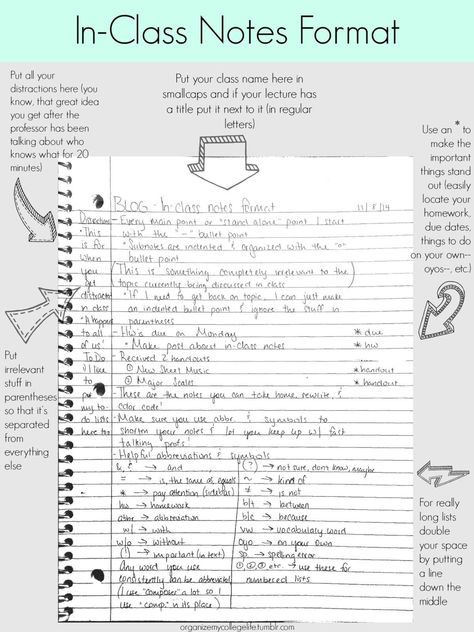 In-Class Notes Format
Put all your
distractions here (you
know, that great idea
you get after the
professor has been
talking about who
knows what for 20
minutes)
Put your class name here in
smallcaps and if your lecture has
a title put it next to it (in regular
letters)
Use an * to
make the
important
things stand
out (easily
locate your
homework,
due dates,
things to do
on your own--
oyos--, etc.)
Put
irrelevant
stuff in
parentheses
so that it's
separated
from
everything
else
For really
long lists
double
your space
by putting
a line
down the
middle
BLOG - In-class notes format 11/5/14
Distractions
*This
is for
when
you
get
distracted
in class
*A happens
to all
of us!
To Do
I like
to
put
my to-
do lists
here too
- Every main point or "stand alone" point I start
with the "-" bullet point
° Subnotes are indented & organized with the "o"
bullet point
(This is something completely irrelevant to the
topic currently being discussed in class)
° If I need to get back on topic, I can just make
an indented bullet point & ignore the stuff in
parentheses
- Hw's due on Monday * due
° Make post about in-class notes * hw
- Received 2 handouts
① New Sheet Music * handout
② Major Scales * handout
- These are the notes you can take home, rewrite, &
color code!
- Make sure you use abbr. & symbols to
shorten your notes & let you keep up w/ fast
talking profs!
- Helpful abbreviations & symbols
→ and
= → is, the same as, equals
* → pay attention (sidebar)
hw → homework
abbr → abbreviation
w/ → with
w/o → without
(!) → important (in text)
Any word you use
consistently can be abbreviated
(I use "composer" a lot so I
use "comp." in its place)
(?) → not sure, don't know, maybe
~ → kind of
≠ → is not
b/t → between
b/c → because
vw → vocabulary word
oyo → on your own
sp → spelling error
①, ②, ③, etc. → use these for
numbered lists
organizemycollegelife.tumblr.com